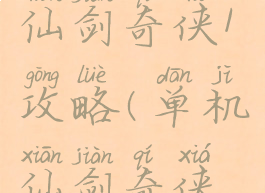 仙剑奇侠1
gōng lüè dān jī
攻略(单机
xiān jiàn qí xiá
仙剑奇侠